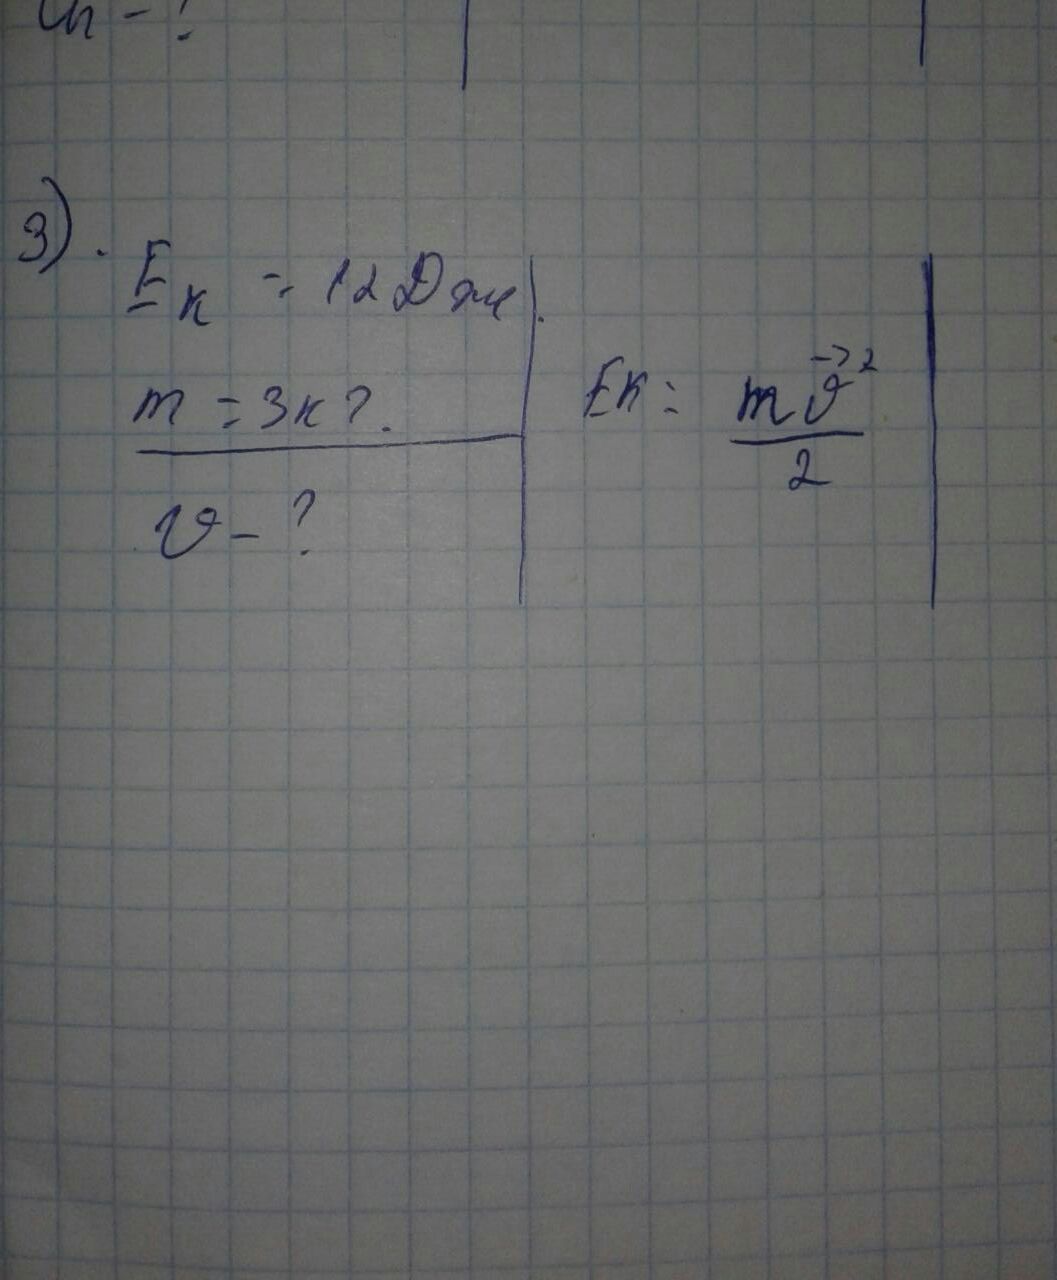 h - ?
3).
Eк = 12 Дж.
m = 3кг.
υ - ?
Eк = mυ⃗²
2